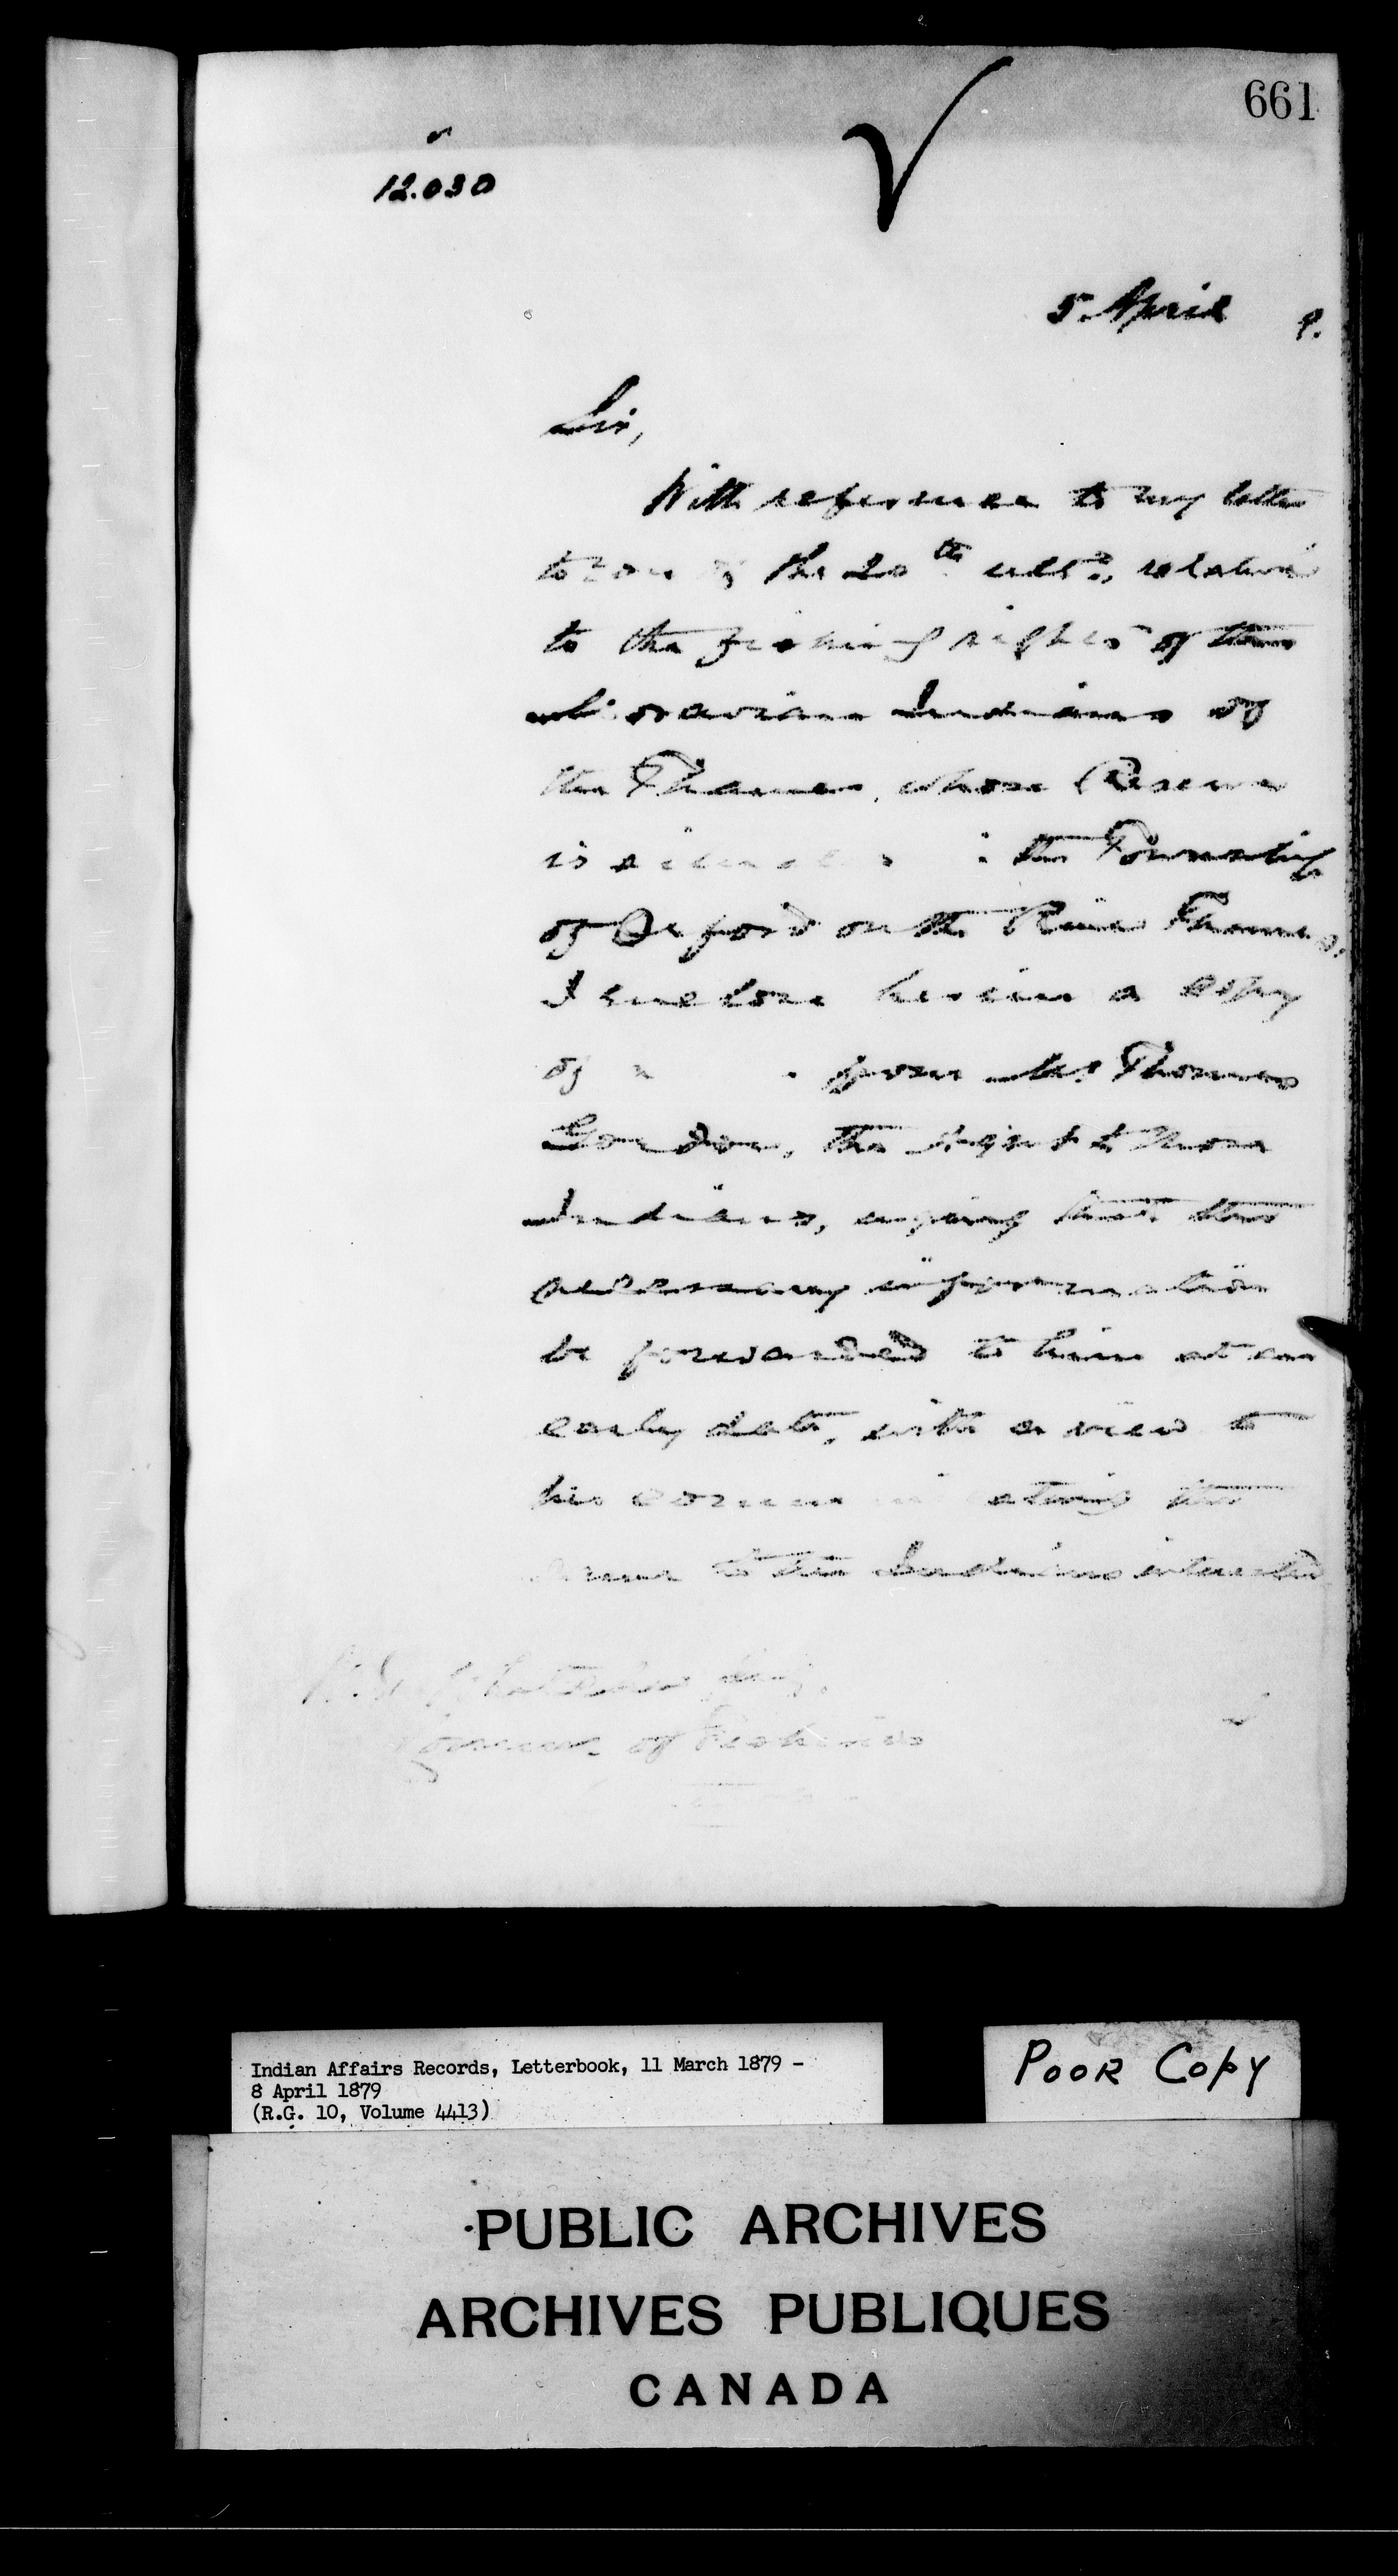 661
12.030
5 April 9.
Sir,
With reference to my letter
to you of the 20th ulto, relative
to the fishing rights of the
Moravian Indians of
the Thames, whose Reserve
is situated in the Township
of Orford on the River Thames,
I enclose herein a copy
of a from Mr Thomas
Gordon, the Agent to those
Indians, urging that the
necessary information
be forwarded to him at an
early date, with a view to
his communicating the
same to the Indians interested
Esq.
of Fisheries
Indian Affairs Records, Letterbook, 11 March 1879 -
8 April 1879
(R.G. 10, Volume 4413)
POOR COPY
PUBLIC ARCHIVES
ARCHIVES PUBLIQUES
CANADA